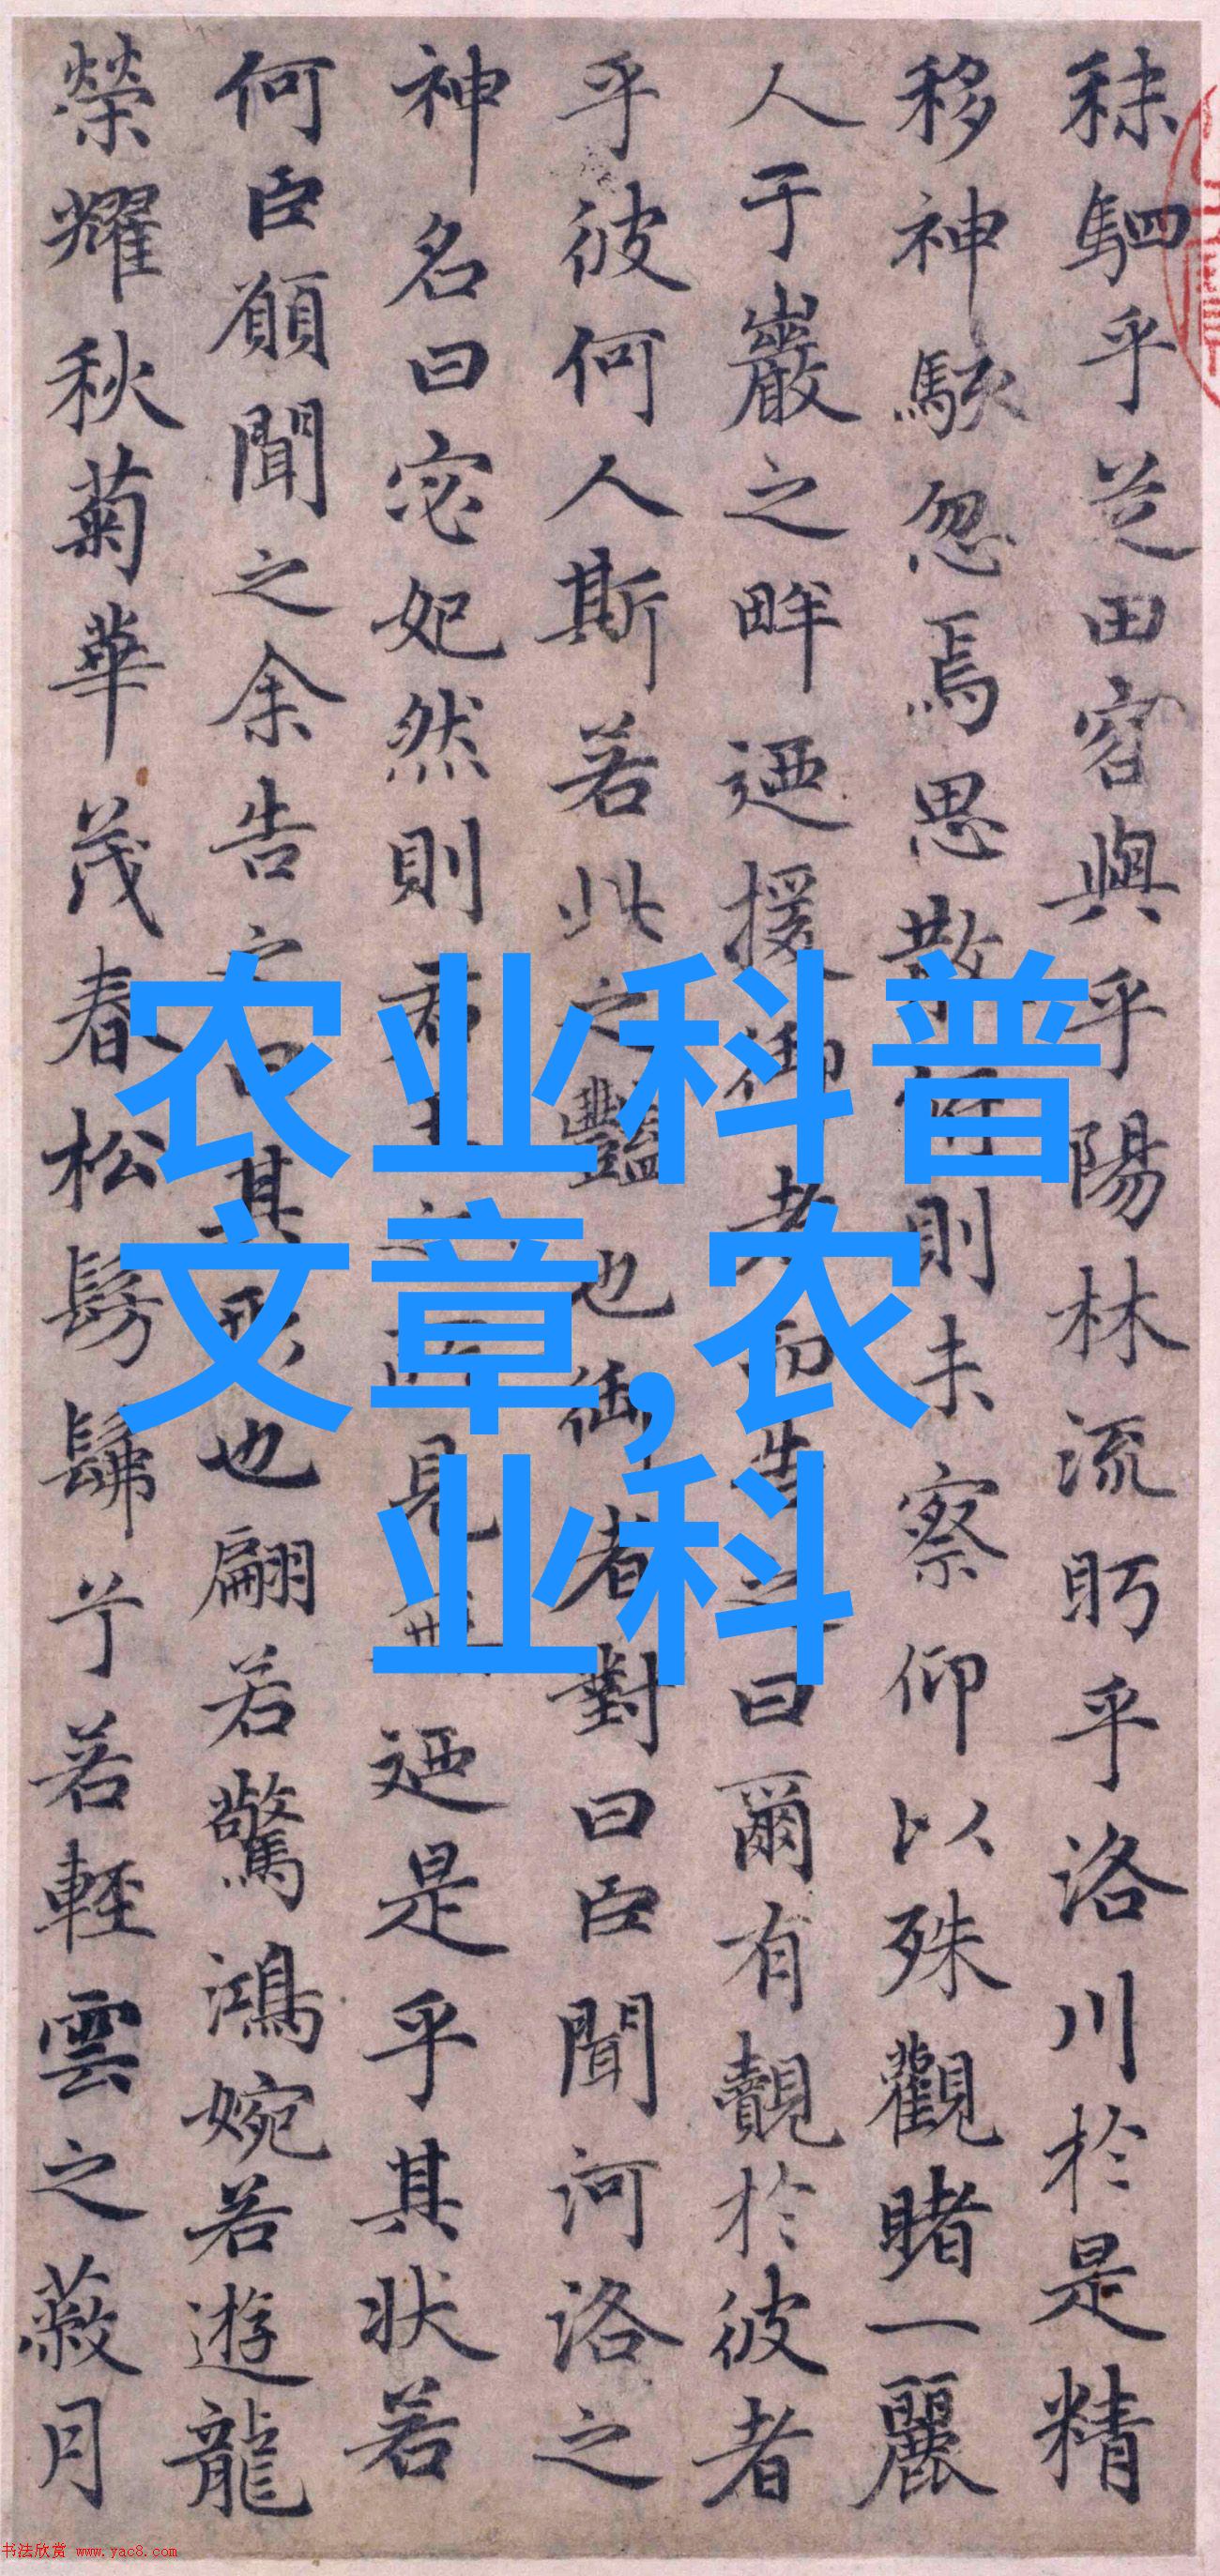 秣駟乎芝田容與乎陽林流眄乎洛川於是精
移神駭忽焉思散俯則未察仰以殊觀睹一麗
人于巖之畔迺援御者而告之曰爾有覿於彼者
乎彼何人斯若此之豔也御者對曰臣聞河洛之
神名曰宓妃然則君王之所見無迺是乎其狀若
何臣願聞之余告之曰其形也翩若驚鴻婉若遊龍
榮耀秋菊華茂春松髣髴兮若輕雲之蔽月
农业科普
文章,农
业科
书法欣赏 www.yac8.com